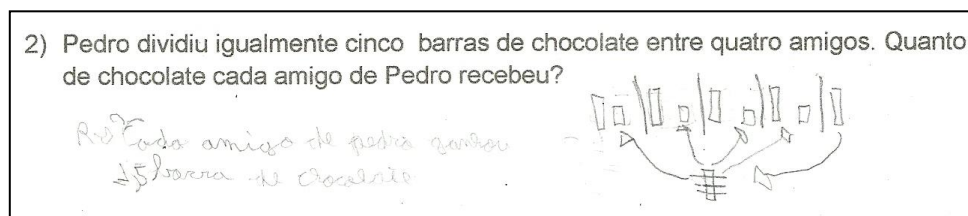 2) Pedro dividiu igualmente cinco barras de chocolate entre quatro amigos. Quanto
de chocolate cada amigo de Pedro recebeu?
Cada amigo de pedro ganhou
1,5 barra de chocolate